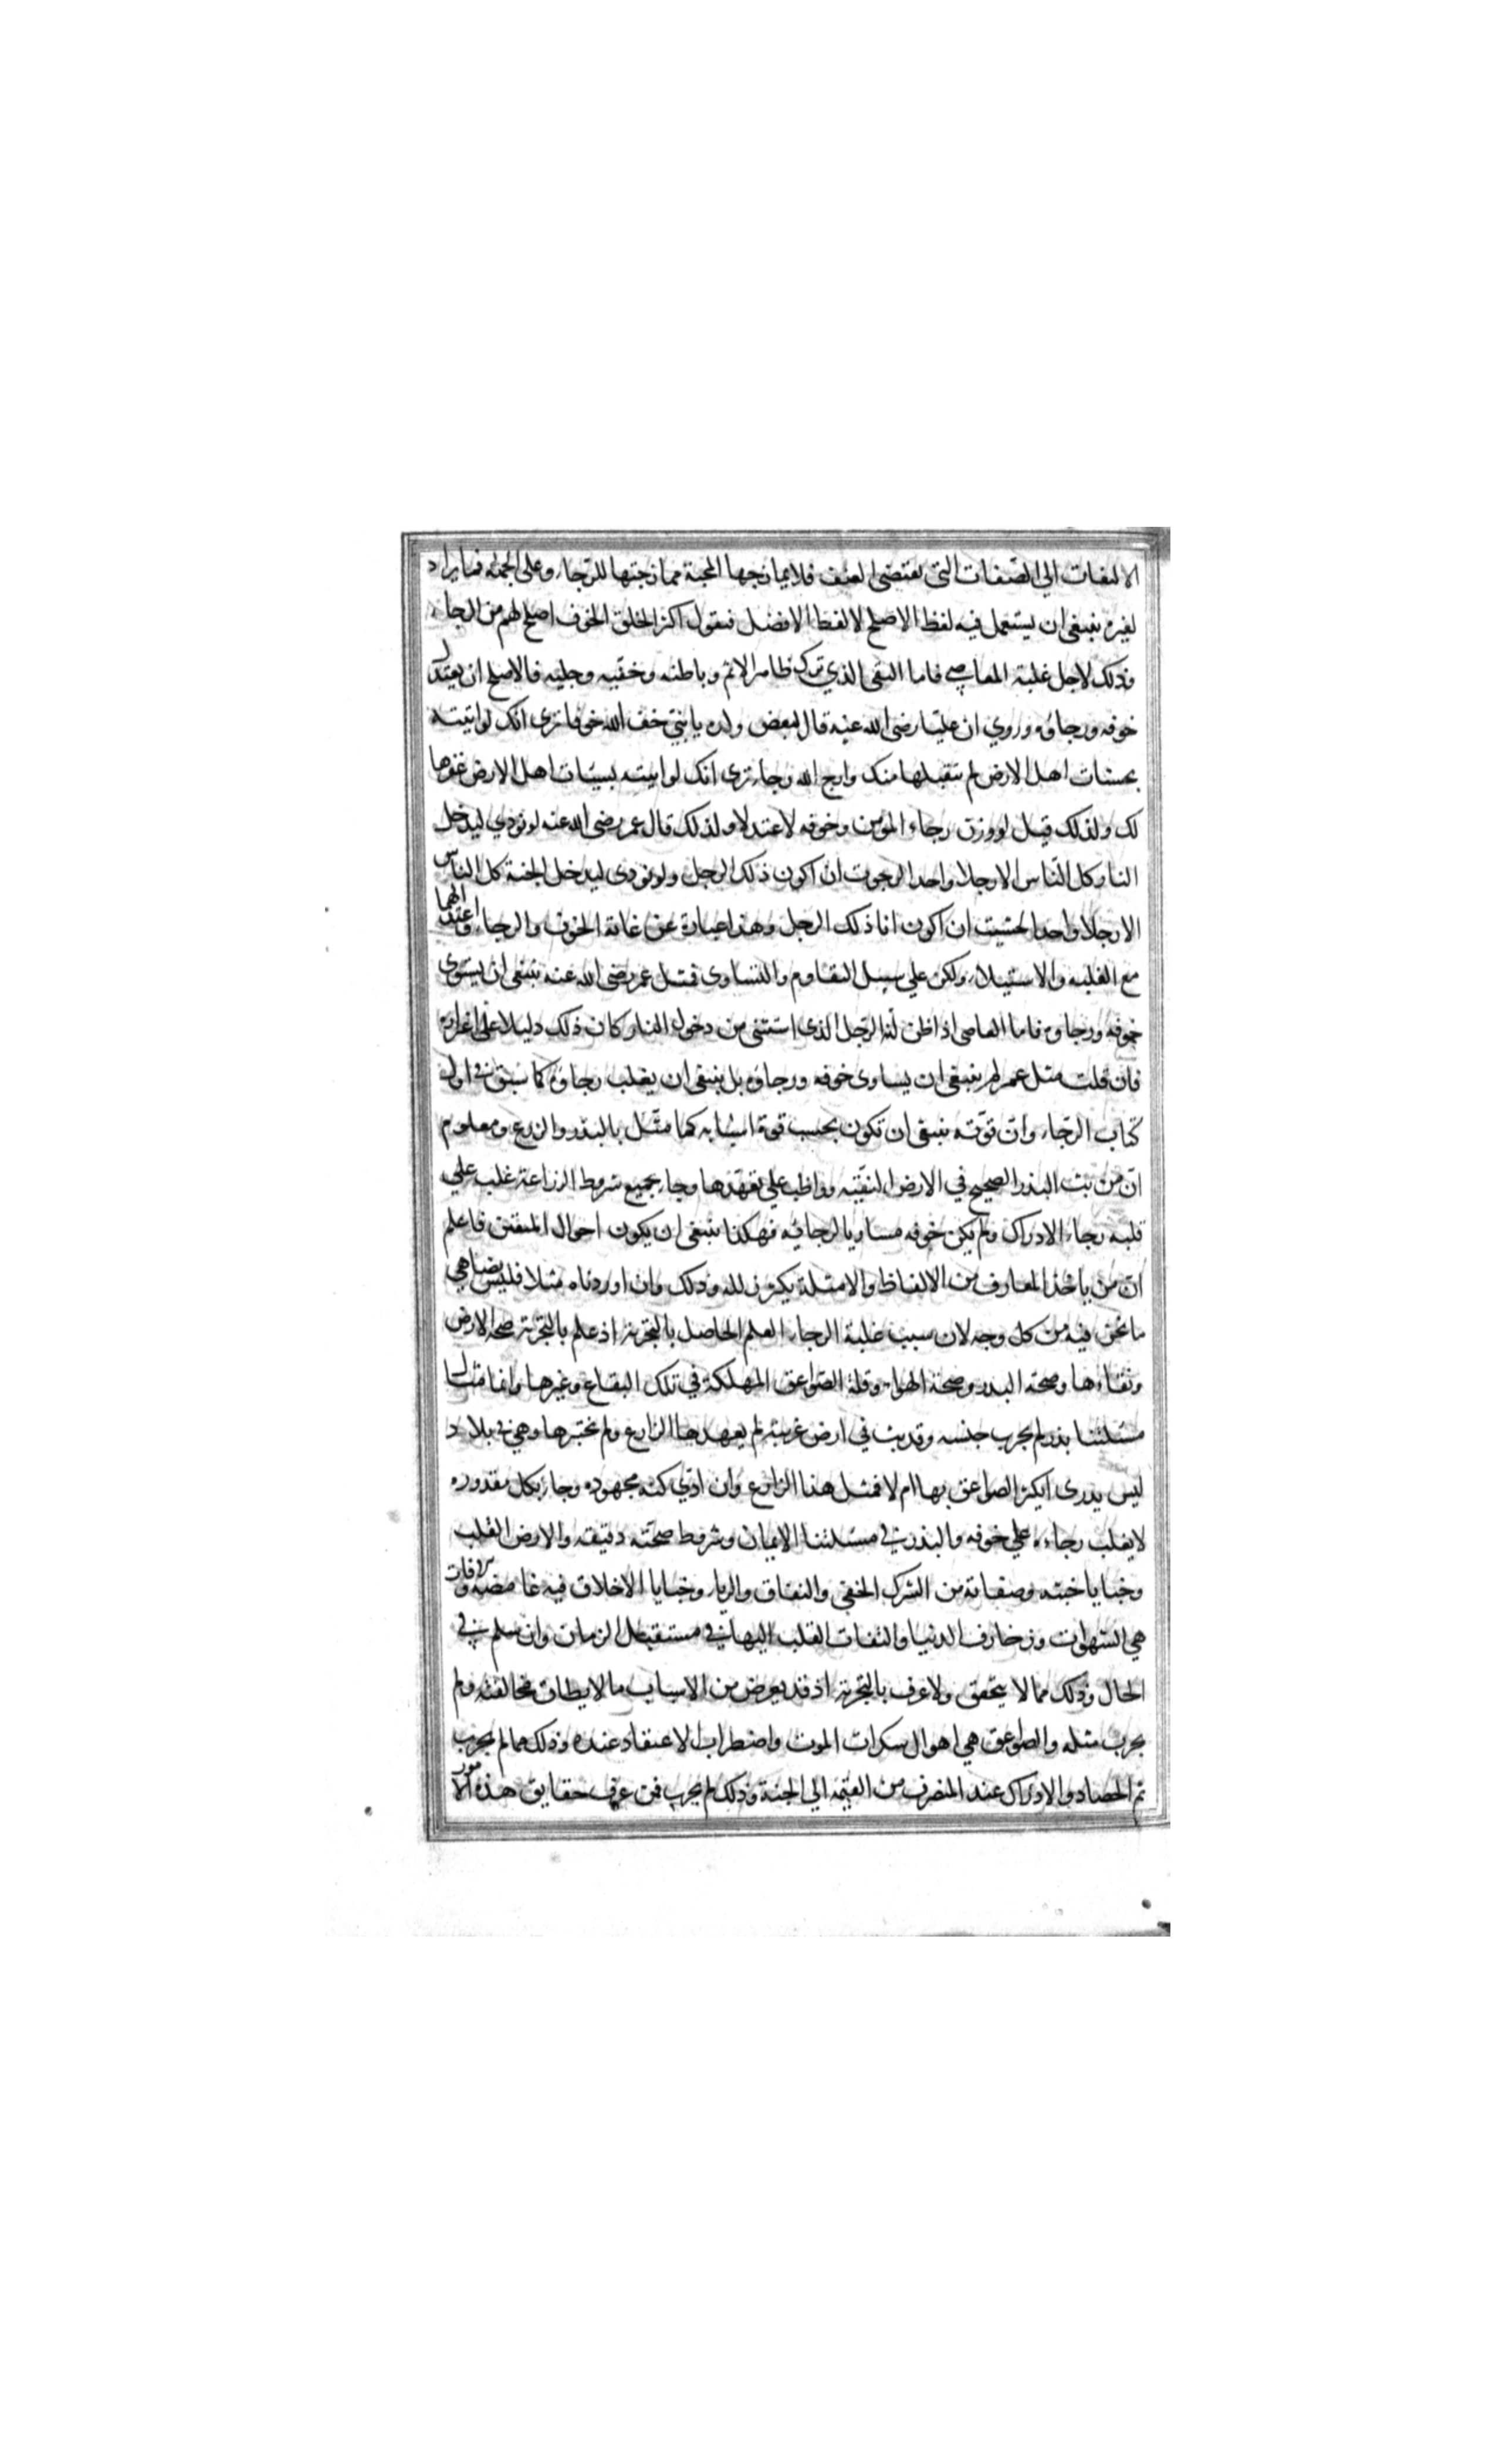 الالتفات الي الصفات التي تقتضي العنف فلا يمازجها المحبة ممازجتها للرجاء وعلي الجملة فما يراد
لغيره ينبغي ان يستعمل فيه لفظ الاصلح لا لفظ الافضل فنقول اكثر الخلق الخوف اصلح لهم من الرجاء
وذلك لاجل غلبة المعاصي فاما التقي الذي ترك ظاهر الاثم وباطنه وخفيه وجليه فالاصلح ان يعتدل
خوفه ورجاؤه وروي ان عليا رضي الله عنه قال لبعض ولده يا بني خف الله خوفا تري انك لو اتيته
بحسنات اهل الارض لم يتقبلها منك وارج الله رجاء تري انك لو اتيته بسيئات اهل الارض غفرها
لك ولذلك قيل لو وزن رجاء المؤمن وخوفه لاعتدلا ولذلك قال عمر رضي الله عنه لو نودي ليدخل
النار كل الناس الا رجلا واحدا لرجوت ان اكون ذلك الرجل ولو نودي ليدخل الجنة كل الناس
الا رجلا واحدا لخشيت ان اكون انا ذلك الرجل وهذا عبارة عن غاية الخوف والرجاء واعتدالهما
مع الغلبه والاستيلاء ولكن علي سبيل التقاوم والتساوي فمثل عمر رضي الله عنه ينبغي ان يستوي
خوفه ورجاوه فاما العاصي اذا ظن انه الرجل الذي استثني من دخول النار كان ذلك دليلا علي اغتراره
فان قلت مثل عمر لم ينبغي ان يساوي خوفه ورجاؤه بل ينبغي ان يغلب رجاؤه كما سبق في اول
كتاب الرجاء وان قوته ينبغي ان تكون بحسب قوة اسبابه كما مثل بالبذر والزرع ومعلوم
ان من بث البذر الصحيح في الارض النقيه وواظب علي تعهدها وجاء بجميع شروط الزراعة غلب علي
قلبه رجاء الادراك ولم يكن خوفه مساويا لرجائه فهكذا ينبغي ان يكون احوال المتقين فاعلم
ان من ياخذ المعارف من الالفاظ والامثلة يكثر زلله وذلك وان اوردناه مثلا فليس يضاهي
ما نحن فيه من كل وجه لان سبب غلبة الرجاء العلم الحاصل بالتجربة اذ علم بالتجربة صحة الارض
ونقاءها وصحة البذر وصحة الهواء وقلة الصواعق المهلكة في تلك البقاع وغيرها وانما مثال
مسئلتنا بذر لم يجرب جنسه وقد بث في ارض غريبة لم يعهدها الزارع ولم يختبرها وهي في بلاد
ليس يدري ايكثر الصواعق بها ام لا فمثل هذا الزارع وان ادي كنه مجهوده وجاء بكل مقدوره
لا يغلب رجاءه علي خوفه والبذر في مسئلتنا الايمان وشروط صحته دقيقه والارض القلب
وخبايا خبثه وصفاته من الشرك الخفي والنفاق والرياء وخبايا الاخلاق فيه غامضه والافات
هي الشهوات وزخارف الدنيا والتفات القلب اليها في مستقبل الزمان وان سلم في
الحال وذلك مما لا يتحقق ولا عرف بالتجربة اذ قد يعرض من الاسباب ما لا يطاق مخالفته ولم
يجرب مثله والصواعق هي اهوال سكرات الموت واضطراب الاعتقاد عنده وذلك مما لم يجرب
ثم الحصاد والادراك عند المنصرف من القيمة الي الجنة وذلك لم يجرب فمن عرف حقايق هذه الامور